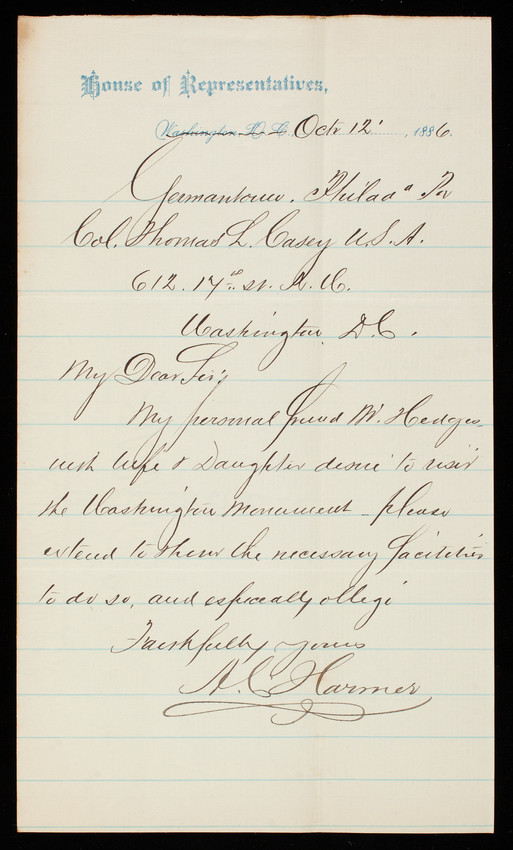 House of Representatives,
Washington, D. C. Octr 12' , 1886.
Germantown. Philada Pa
Col. Thomas L. Casey U.S.A.
612. 17th. st. N. W.
Washington D.C.
My Dear Sir;
My personal friend Mr. Hedges
with wife & Daughter desire to visit
the Washington Monument - please
extend to them the necessary facilities
to do so, and especially oblige
Faithfully yours
A. C. Harmer